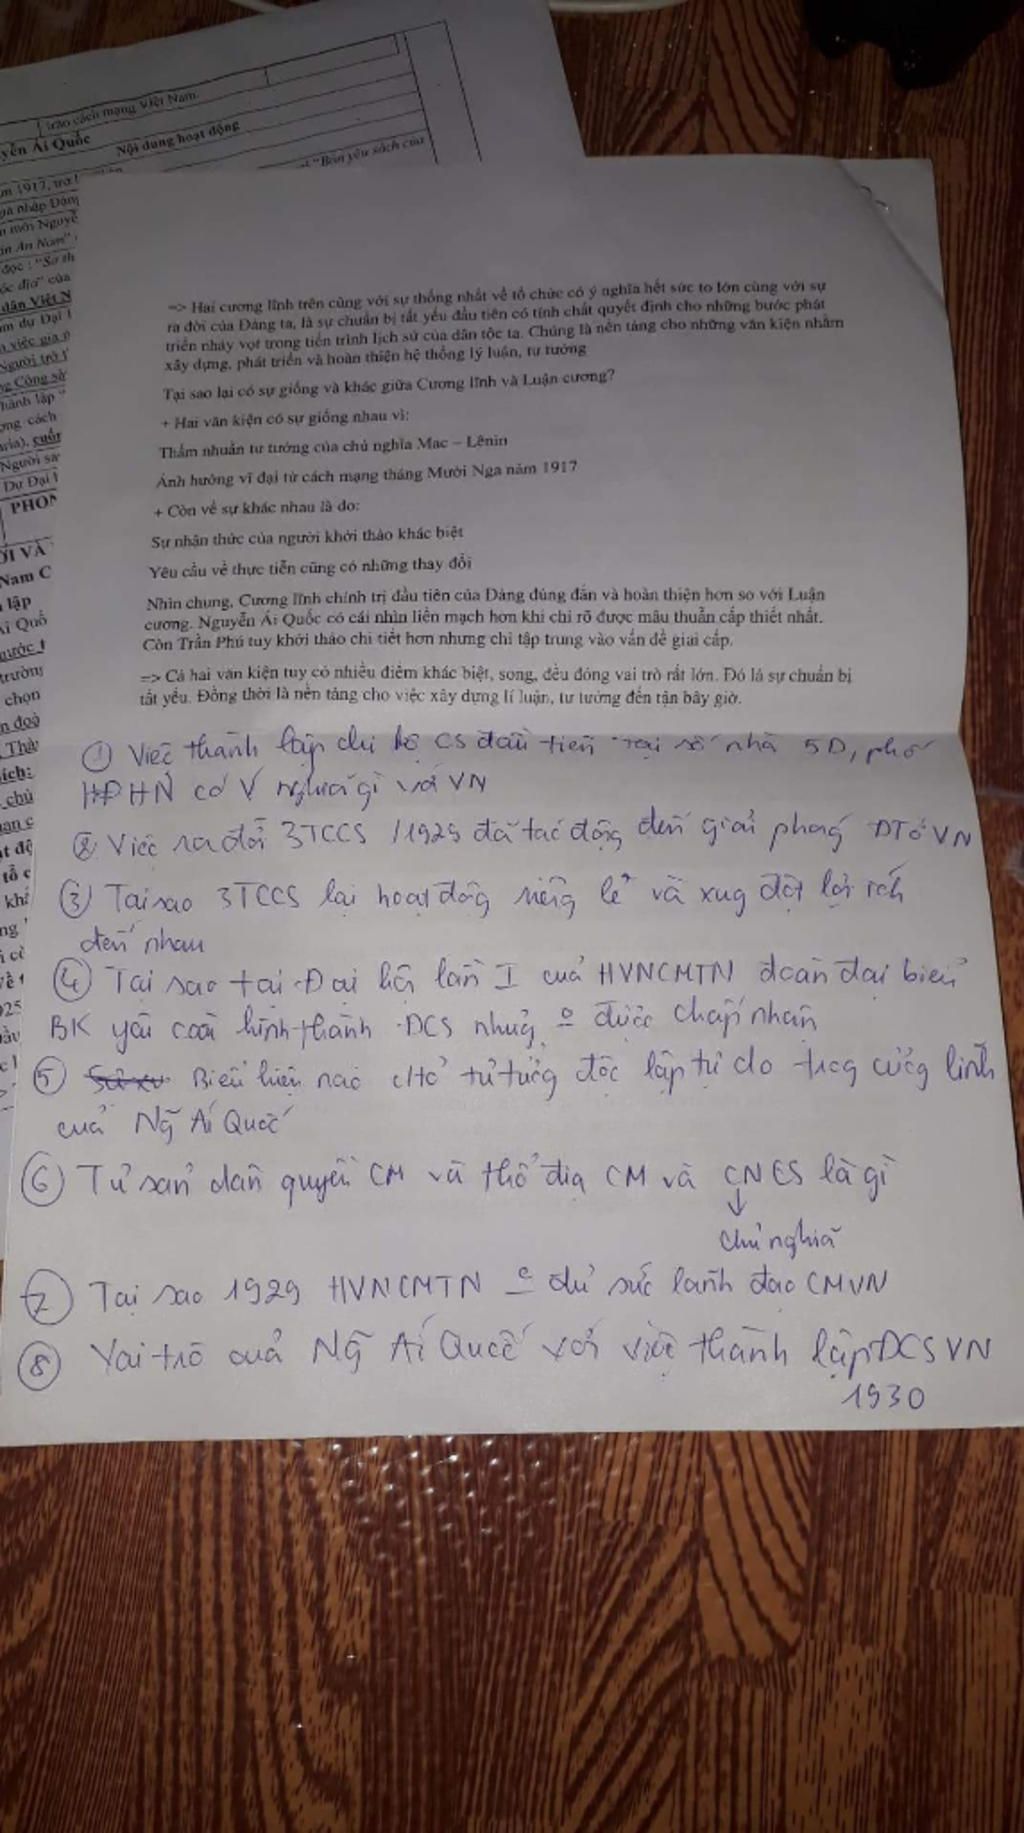 trào cách mạng Việt Nam.
yễn Ái Quốc
Nội dung hoạt động
"Bản yêu sách của
=> Hai cương lĩnh trên cùng với sự thống nhất về tổ chức có ý nghĩa hết sức to lớn cùng với sự
ra đời của Đảng ta, là sự chuẩn bị tất yếu đầu tiên có tính chất quyết định cho những bước phát
triển nhảy vọt trong tiến trình lịch sử của dân tộc ta. Chúng là nền tảng cho những văn kiện nhằm
xây dựng, phát triển và hoàn thiện hệ thống lý luận, tư tưởng
Tại sao lại có sự giống và khác giữa Cương lĩnh và Luận cương?
+ Hai văn kiện có sự giống nhau vì:
Thấm nhuần tư tưởng của chủ nghĩa Mac – Lênin
Ảnh hưởng vĩ đại từ cách mạng tháng Mười Nga năm 1917
+ Còn về sự khác nhau là do:
Sự nhận thức của người khởi thảo khác biệt
Yêu cầu về thực tiễn cũng có những thay đổi
Nhìn chung, Cương lĩnh chính trị đầu tiên của Đảng đúng đắn và hoàn thiện hơn so với Luận
cương. Nguyễn Ái Quốc có cái nhìn liền mạch hơn khi chỉ rõ được mâu thuẫn cấp thiết nhất.
Còn Trần Phú tuy khởi thảo chi tiết hơn nhưng chỉ tập trung vào vấn đề giai cấp.
=> Cả hai văn kiện tuy có nhiều điểm khác biệt, song, đều đóng vai trò rất lớn. Đó là sự chuẩn bị
tất yếu. Đồng thời là nền tảng cho việc xây dựng lí luận, tư tưởng đến tận bây giờ.
① Việc thành lập chi bộ CS đầu tiên tại số nhà 5D, phố
HĐHN có Ý nghĩa gì với VN
② Việc ra đời 3TCCS 1929 đã tác động đến giải phóng DT ở VN
③ Tại sao 3TCCS lại hoạt động riêng lẻ và xug đột lợi ích
đến nhau
④ Tại sao tại Đại hội lần I cuả HVNCMTN đoàn đại biểu
BK yêu cầu hình thành ĐCS nhưg o được chấp nhận
⑤ Biểu hiện nào cho tư tưởg độc lập tự do trog cươg lĩnh
cuả Ng~ Ái Quốc
⑥ Tư sản dân quyền CM và thổ địa CM và CNCS là gì
↓
chủ nghĩa
⑦ Tại sao 1929 HVNCMTN o đủ sức lãnh đạo CMVN
⑧ Vai trò cuả Ng~ Ái Quốc với việc thành lập ĐCSVN
1930